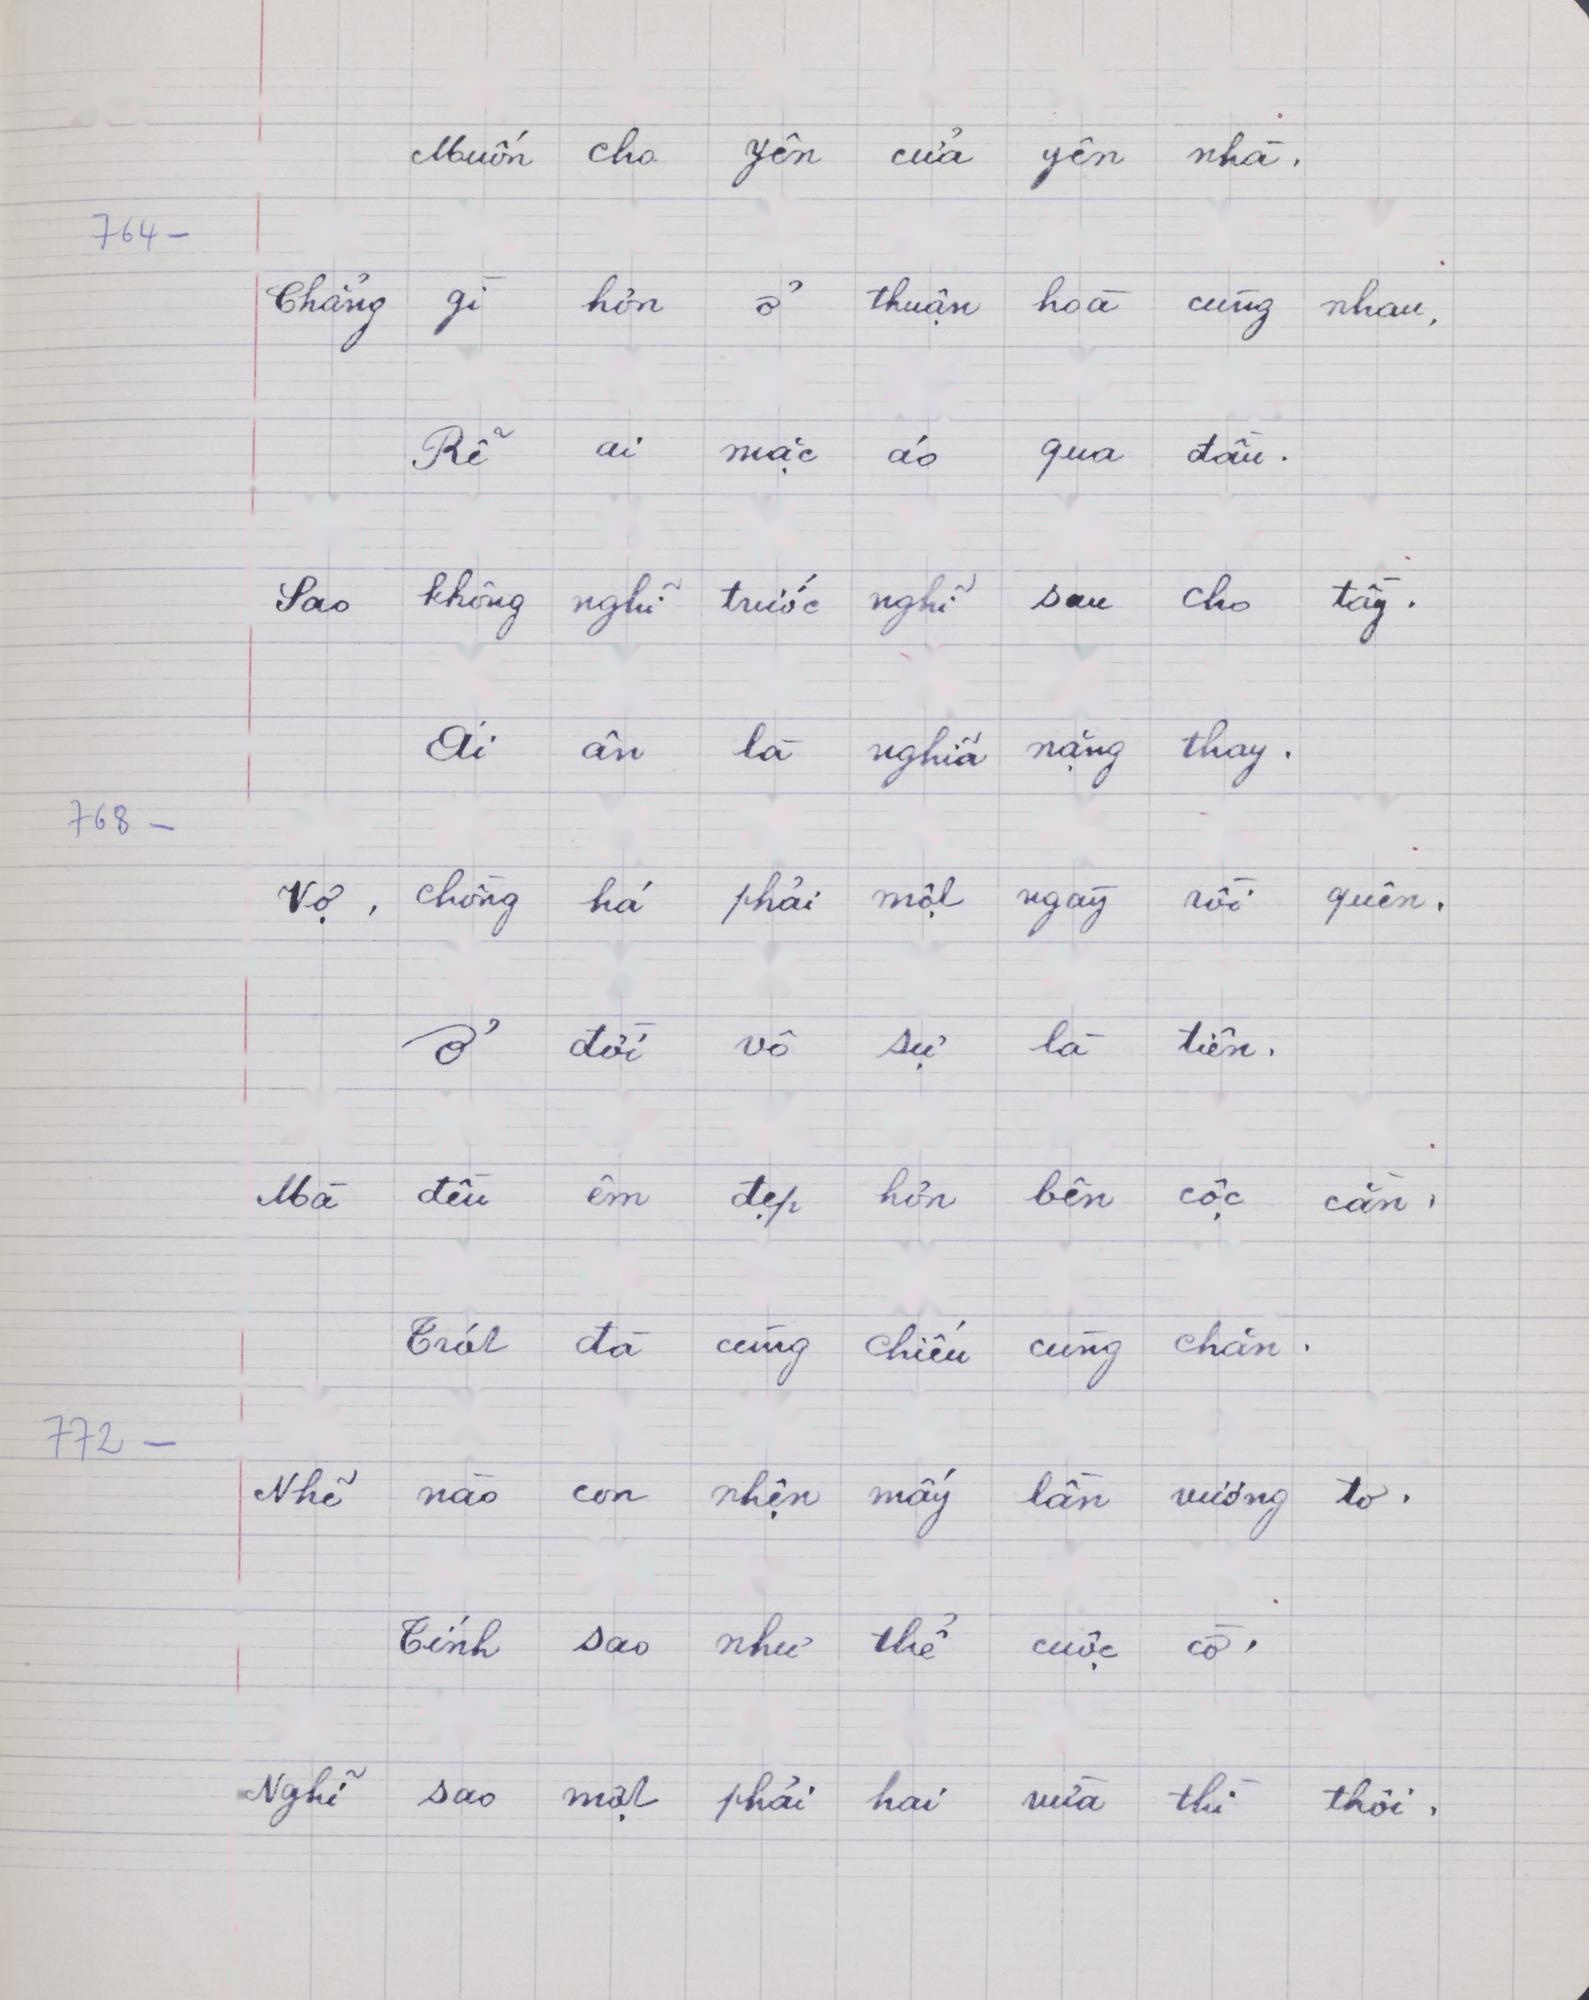 Muốn cho yên cửa yên nhà.
764-
Chẳng gì hơn ở thuận hoà cùng nhau,
Rễ ai mặc áo qua đầu.
Sao không nghĩ trước nghĩ sau cho tầy.
Ái ân là nghĩa nặng thay.
768-
Vợ, chồng há phải một ngày rồi quên.
Ở đời vô sự là tiên.
Mà đều êm đẹp hơn bên cộc cằn,
Trót đà cùng chiếu cùng chăn.
772-
Nhẽ nào con nhện mấy lần vương tơ.
Tính sao như thể cuộc cờ,
Nghĩ sao một phải hai vừa thì thôi.